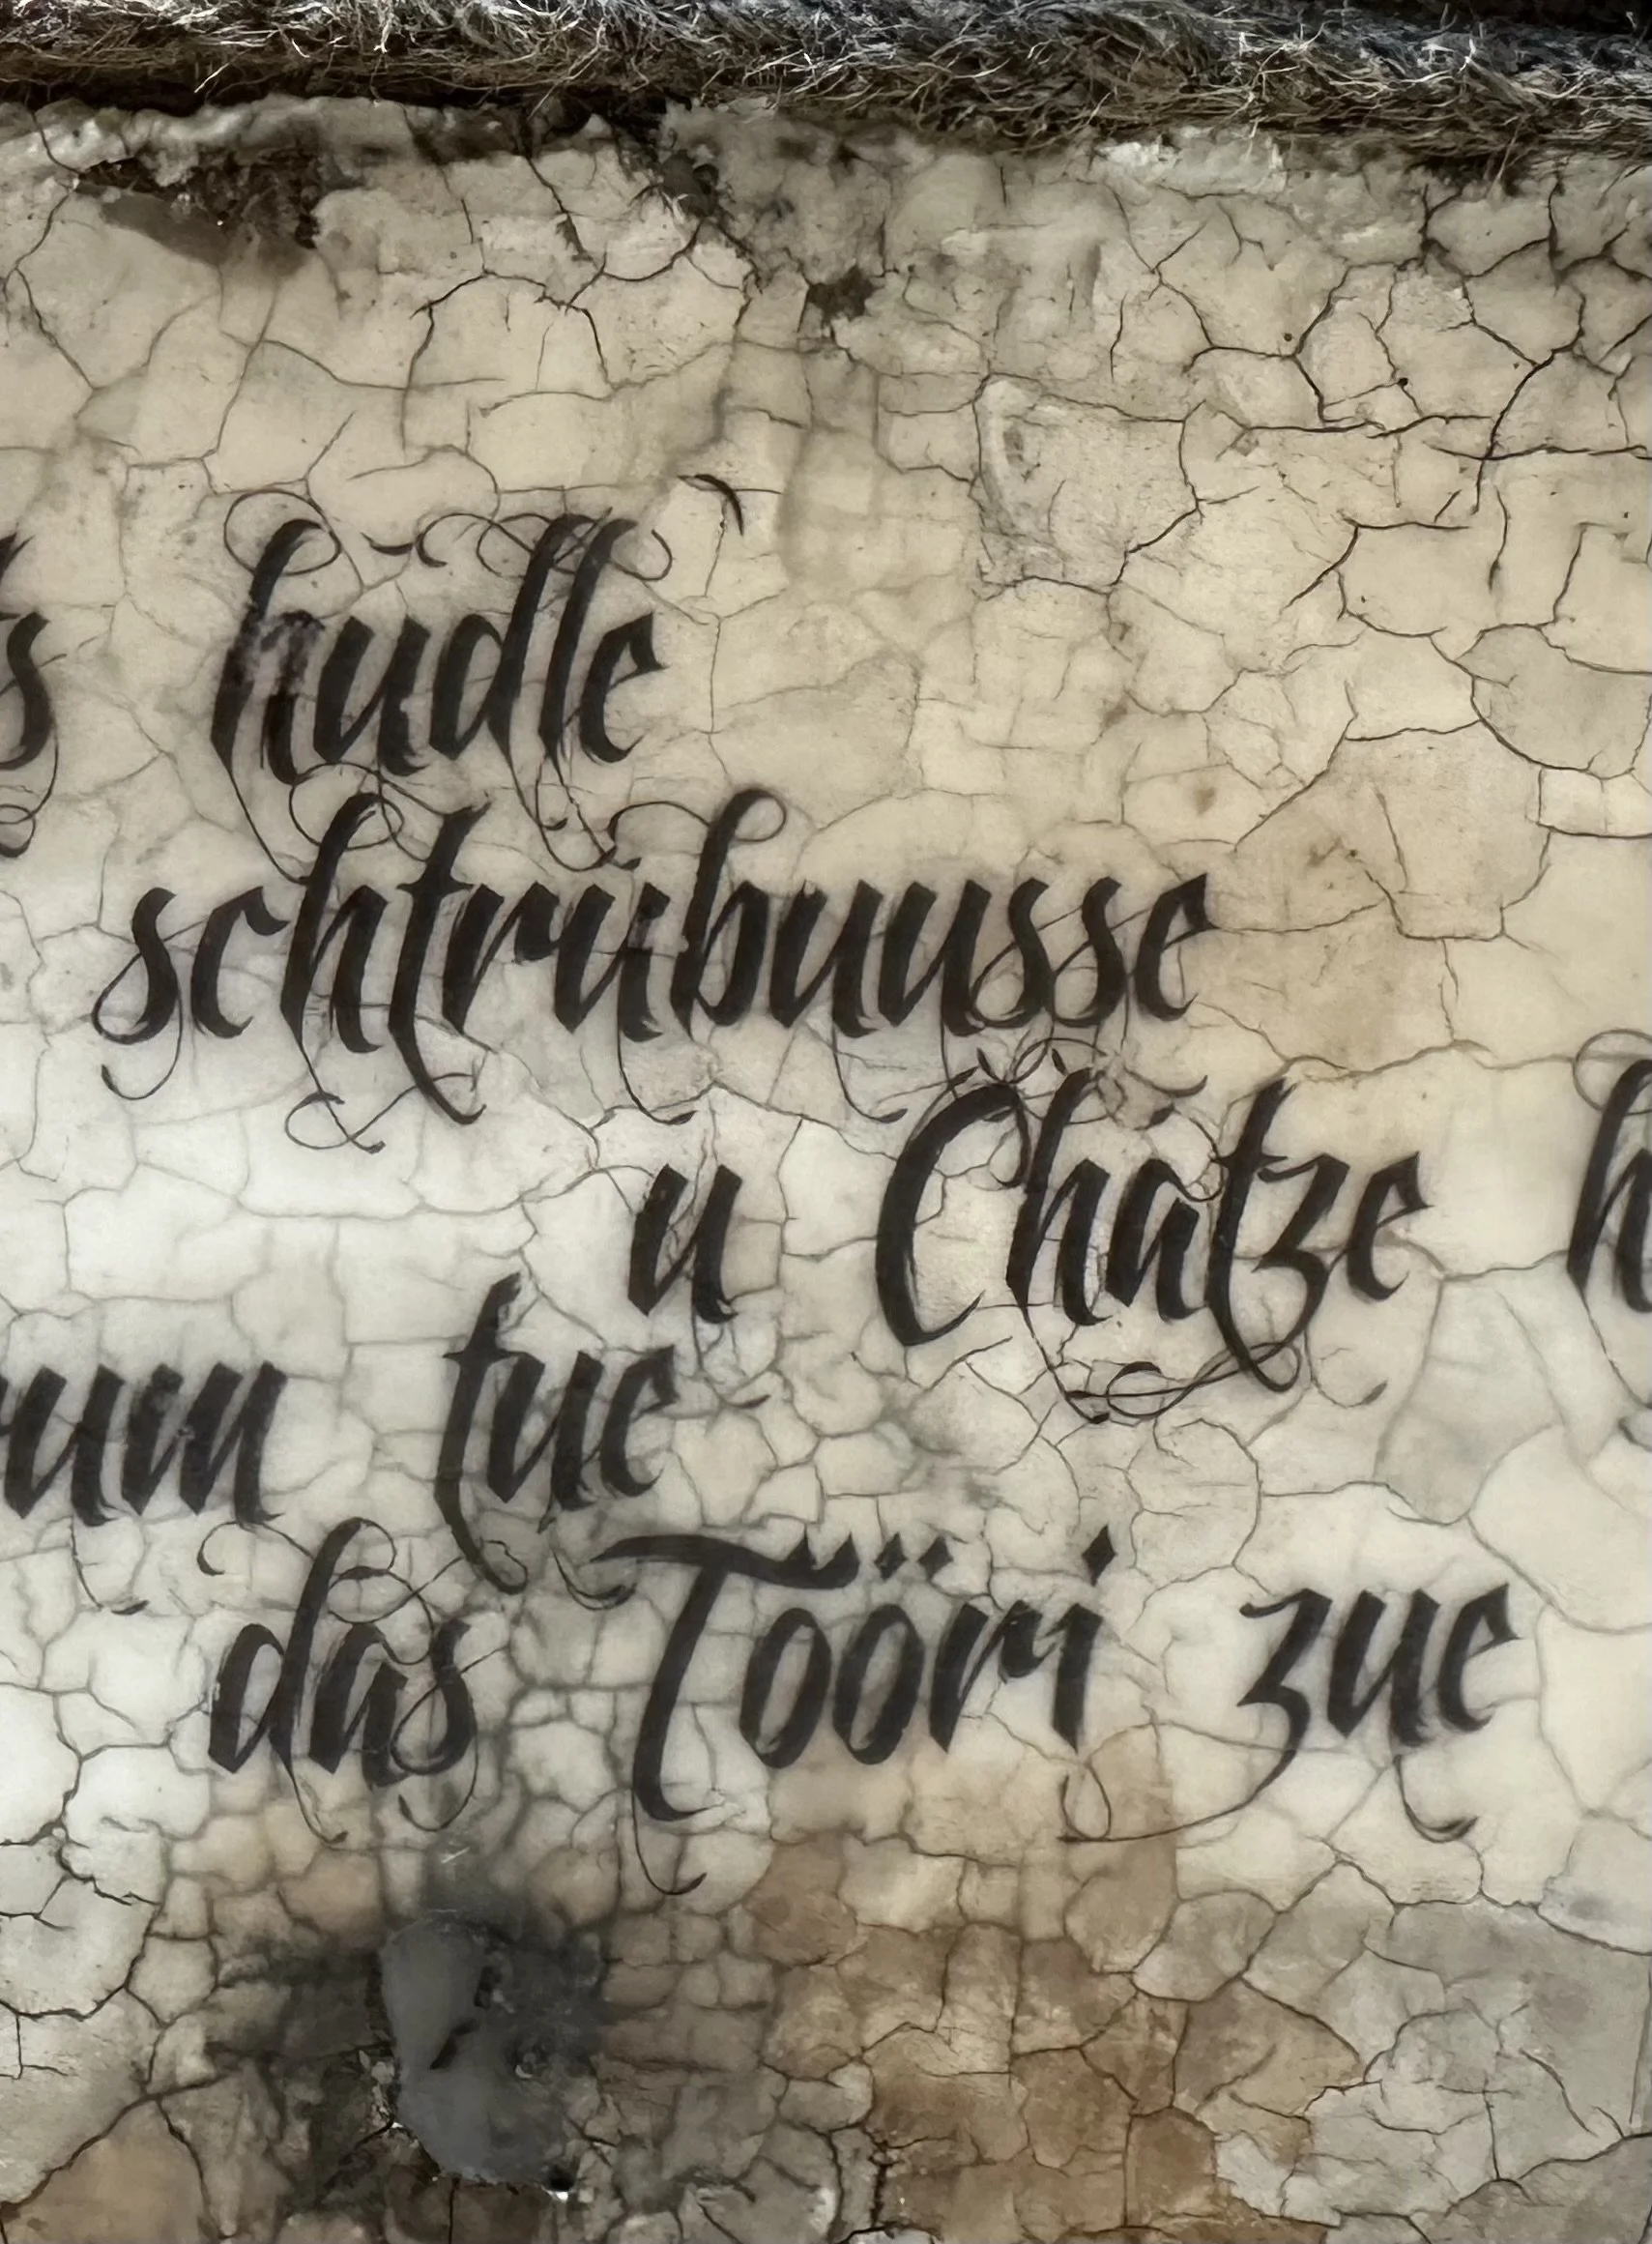 hudle
schtrubuusse
u Chatze
tue
das Tööri zue